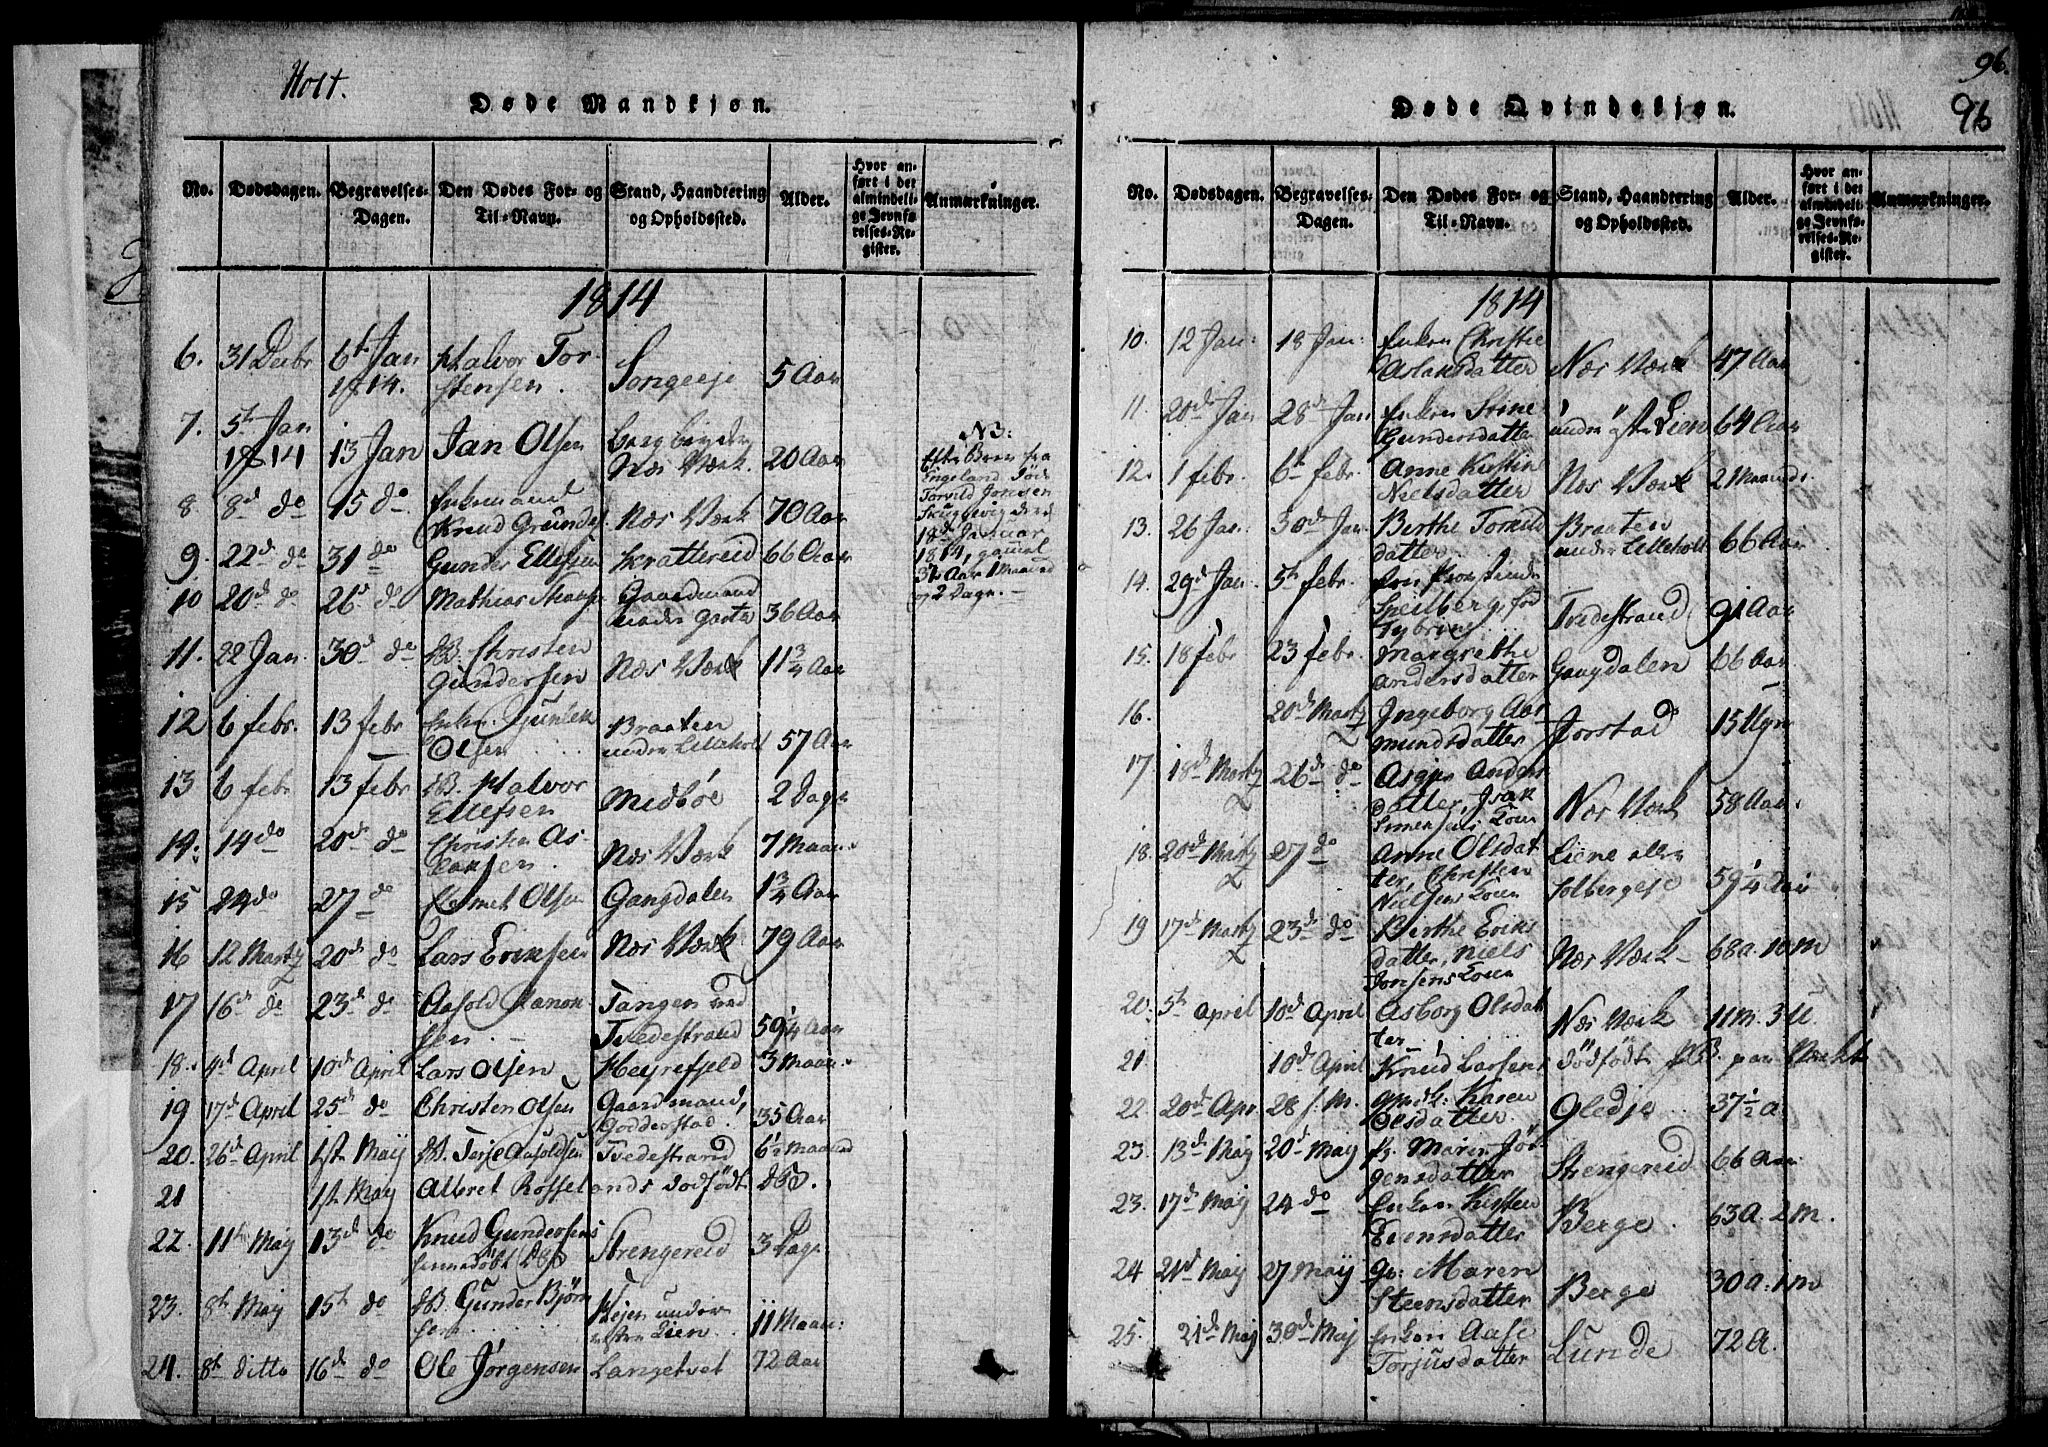 Holt.
Døde Mandkjøn.
No. Dødsdagen. Begravelses-Dagen. Den Dødes For- og Til-Navn. Stand, Haandtering og Opholdssted. Alder. Hvor anført i det almindelige Jevnførelses-Register. Anmærkninger.
1814
6. 31 Decbr 6te Jan 1814. Halvor Torstensen. Songeeje 5 Aar
7. 5te Jan 1814 13 Jan Jan Olsen Næs Værk. 20 Aar
8 8d do 15 do. Enkemand Knud Gunders Næs Værk 70 Aar
9. 22d do 31 do Gunder Ellefsen Skrattereid 66 Aar
10 20d do 26d do Mathias Gaardmand under Garta 36 Aar
NB:
Efter Brev fra
Engeland Døde
Torvild Jonsen
18de Januar
1814, gamel
31 Aar 1 Maaned
og 2 Dage. –
11. 22 Jan 30d do DB. Christen Gundersen Næs Værk 1 3/4 Aar
12 6 febr. 13 febr Enkm. Gunlek Olsen Braaten under Lilleholt 57 Aar
13 6 febr 13 febr DB. Halvor Ellefsen Midböe 2 Dage
14. 14 do 20d do Christen Aslaksen. Næs Værk 7 Maan:
15 24 do 27 do Olsen Gangdalen 1 3/4 Aar
16 12 Marty 20d do Lars Eriksen Næs Værk 79 Aar
17 16d do 23d do Aasold Aanonsen. Tangen ved Tvedestrand 59 1/4 Aar
18. 4d April 10d April Lars Olsen Heyrefjeld 3 Maan:
19 17d April 25d do Christen Olsen Gaardmand, Godderstad. 35 Aar
20. 26d April 1ste Maij DB. Terje Aasoldsen Tvedestrand 6 1/2 Maaned
21 1ste May Albret Rossel onds dødfödt DB.
22. 11te May 13d do Knud Gundersens hiemedöbt DB Strengereid 3 Dage
23. 8te May 15te do DB. Gunder Björnsen Hejen under östre Lien 11 Maan:
24. 8te ditto 16d do Ole Jörgensen Langetvet 72 Aar
96.
96
Døde Qvindekjøn.
No. Dødsdagen. Begravelses-Dagen. Den Dødes For- og Til-Navn. Stand, Haandtering og Opholdssted. Alder. Hvor anført i det almindelige Jevnførelses-Register. Anmærkninger.
1814
10. 12 Jan: 18 Jan: Enken Christie Aslaksdatter Næs Værk 47 Aar
11. 20d Jan 28d Jan Enken Stine Gundersdatter under østre Lien 64 Aar
12. 1 febr. 6te febr Anne Kirstine Nielsdatter Næs Værk 2 Maaneder
13. 26 Jan. 30d Jan Berthe Torkildsdatter. Braaten under Lilleholt 66 Aar
14. 29d Jan. 5te febr. Speilberg, fød Tybring Tvedestrand 91 Aar
15. 18 febr 23 febr. Margrethe Andersdatter Gangdalen 66 Aar
16. 20d Marty Ingeborg Aamundsdatter Jorstad 15 Uger
17. 18d Marty 26d do Anders datter, Isak Simensens Koen Næs Værk 58 Aar.
18. 20d Marty 27 do Anne Olsdatter, Christen Nielsens Koen Liene eller Solbergeje 59 1/4 Aar
19 17d Marty 23d do Berthe Eriksdatter, Niels Jonsens Koen Næs Værk – 68 a. 10 m
20. 5te April 10d April Asborg Olsdatter Næs Værk 11 m. 3 U.
21. 10d April Knud Larsens dödfödt PB. paa Værket
22. 20d Apr. 28 s. M. Karen Olsdatter. Gledje. 37 1/2 a.
23. 13d Maij 20d May Maren Jörgensdatter Strengereid 66 Aar
23. 17d May 24 do Enken Kirsten Evensdatter Berge. 63 a. 2 m.
24 21d Maij 27 Maij Maren Steensdatter Berge 30 a. 1 m
25. 21d Maj 30d Maij Enken Aase Torjusdatter Lunde 72 a.